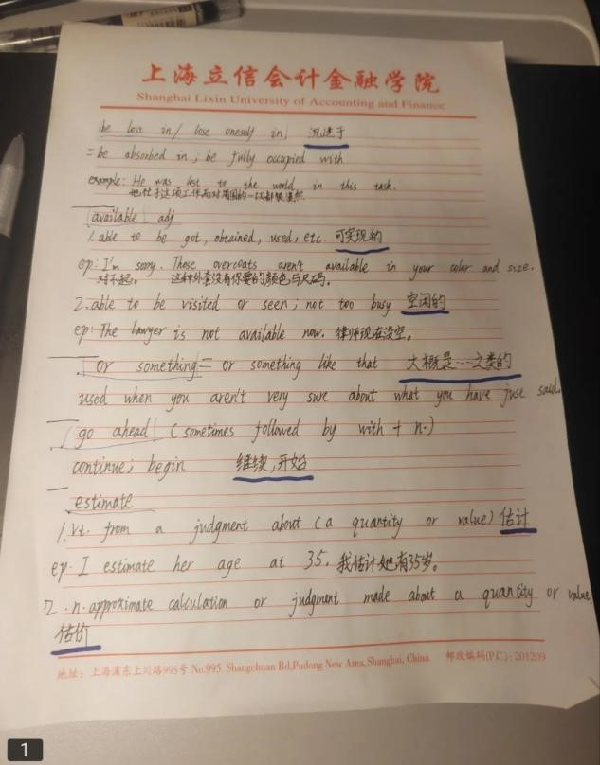 上海立信会计金融学院
Shanghai Lixin University of Accounting and Finance
be lost in/ lose oneself in 沉迷于
= be absorbed in; be fully occupied with
example: He was lost to the world in this task.
他忙于这项工作而对周围的一切都很漠然
available adj
1. able to be got, obtained, used, etc. 可实现的
ep: I'm sorry. These overcoats aren't available in your color and size.
对不起, 这种外套没有你要的颜色与尺码。
2. able to be visited or seen; not too busy 空闲的
ep: The lawyer is not available now. 律师现在没空,
or something = or something like that 大概是……之类的
used when you aren't very sure about what you have just said.
go ahead (sometimes followed by with + n.)
continue; begin 继续,开始
estimate
1. vt. from a judgment about (a quantity or value) 估计
ep. I estimate her age at 35. 我估计她有35岁。
2. n. approximate calculation or judgment made about a quantity or value
估价
地址: 上海浦东上川路995号 No.995 Shangchuan Rd,Pudong New Area,Shanghai, China 邮政编码(P.C): 201209
1